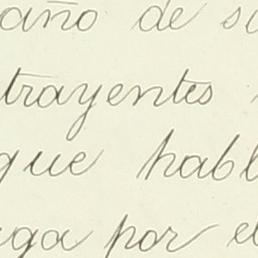 año de su
trayentes
que habl
aga por el